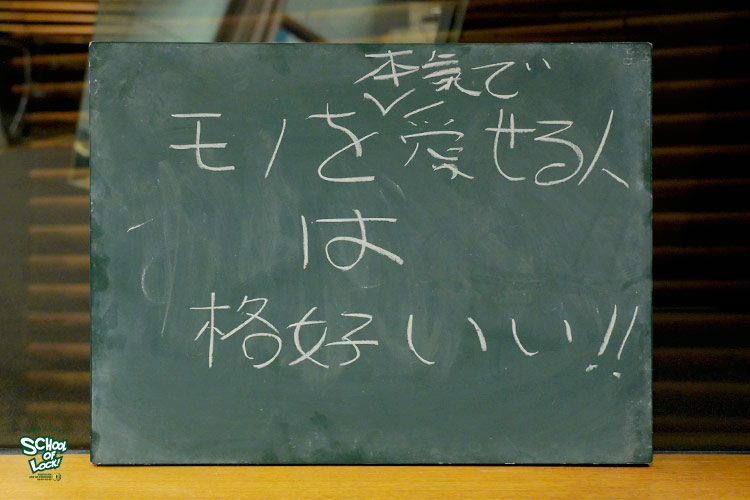 本気で
モノを愛せる人
は
格好いい!!
SCHOOL
OF
LOCK!